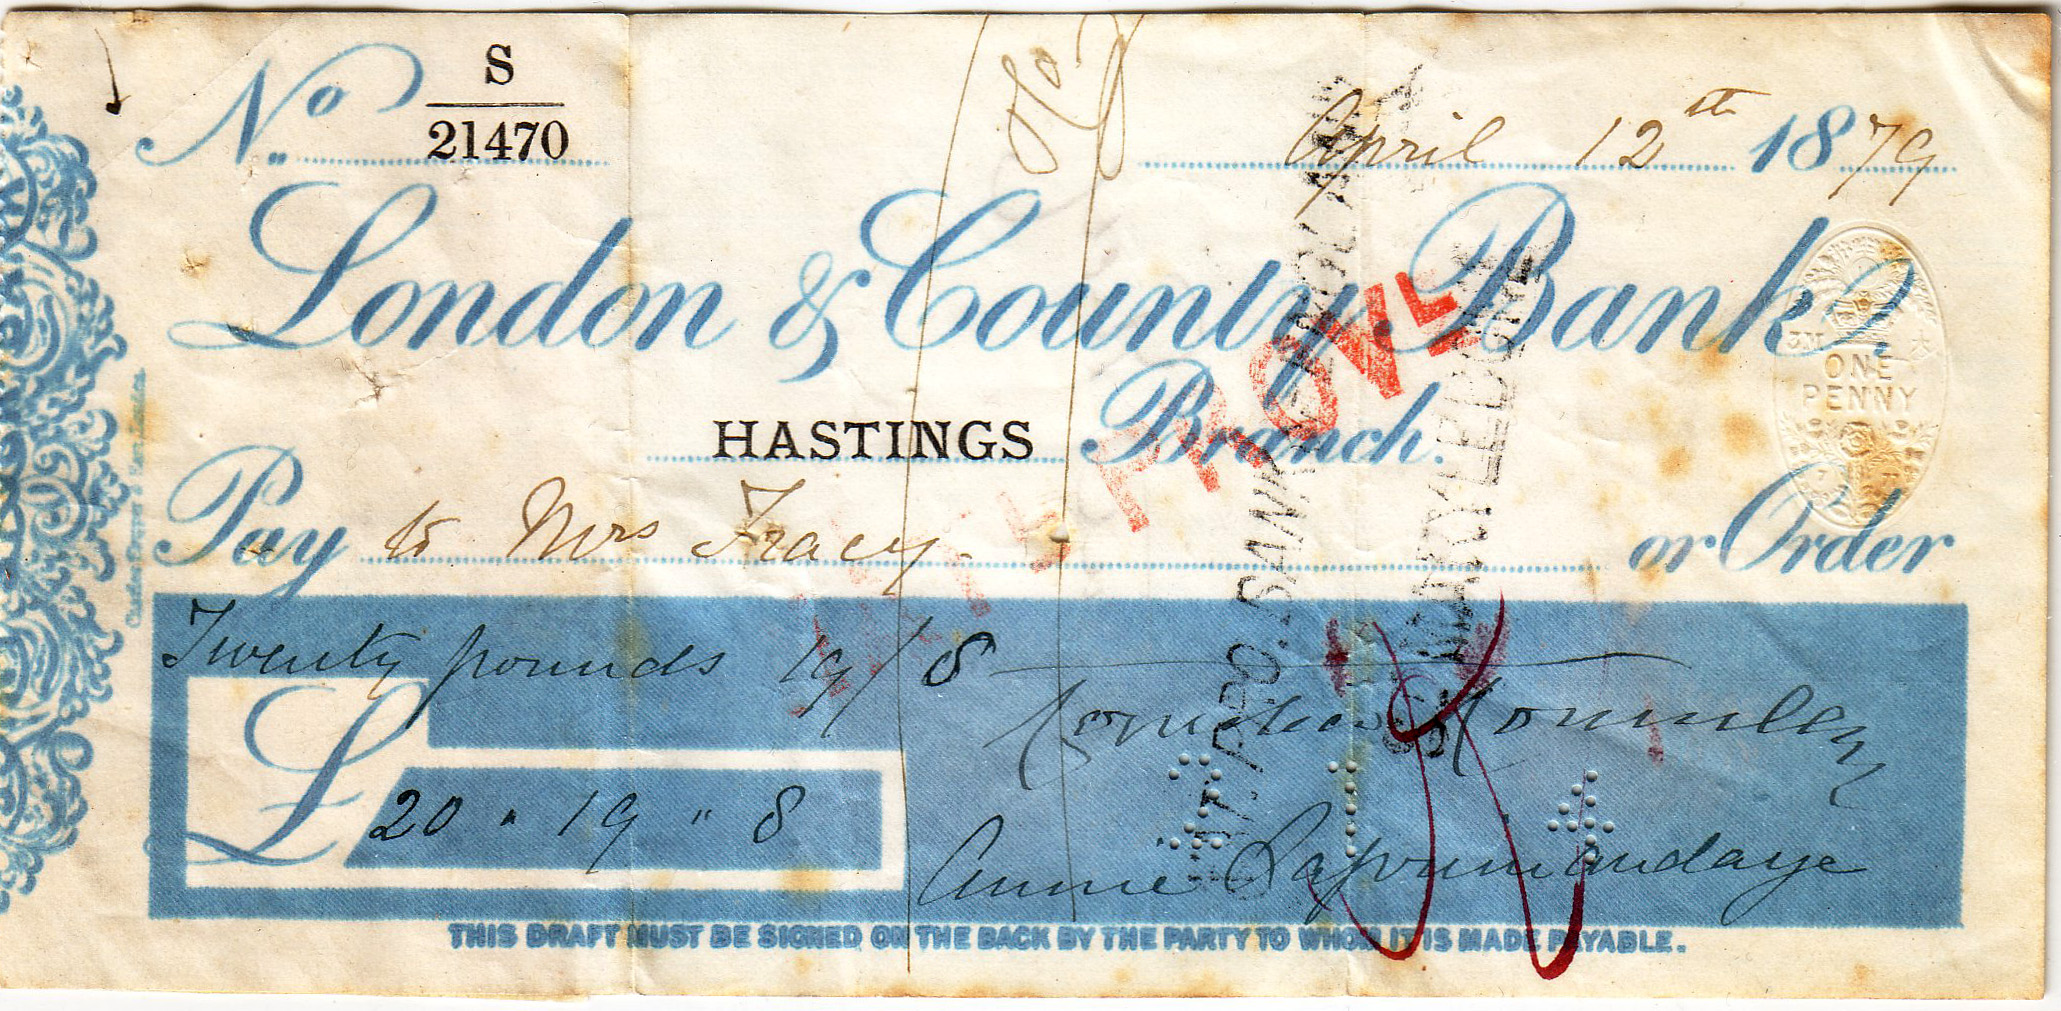 No. S
21470
& Co
April 12th 1879
London & County Bank
HASTINGS Branch.
ONE
PENNY
Pay to Mrs Tracy. or Order
Twenty pounds 19/8
£ 20 " 19 " 8
Annie
THIS DRAFT MUST BE SIGNED ON THE BACK BY THE PARTY TO WHOM IT IS MADE PAYABLE.